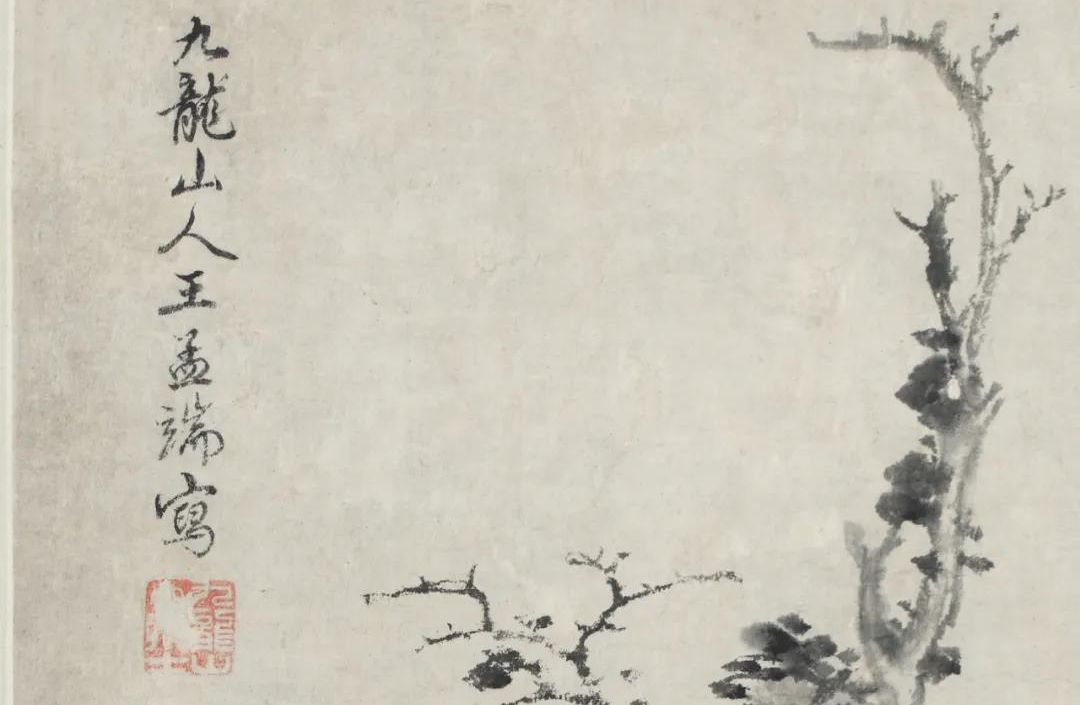 九龍山人王孟端寫